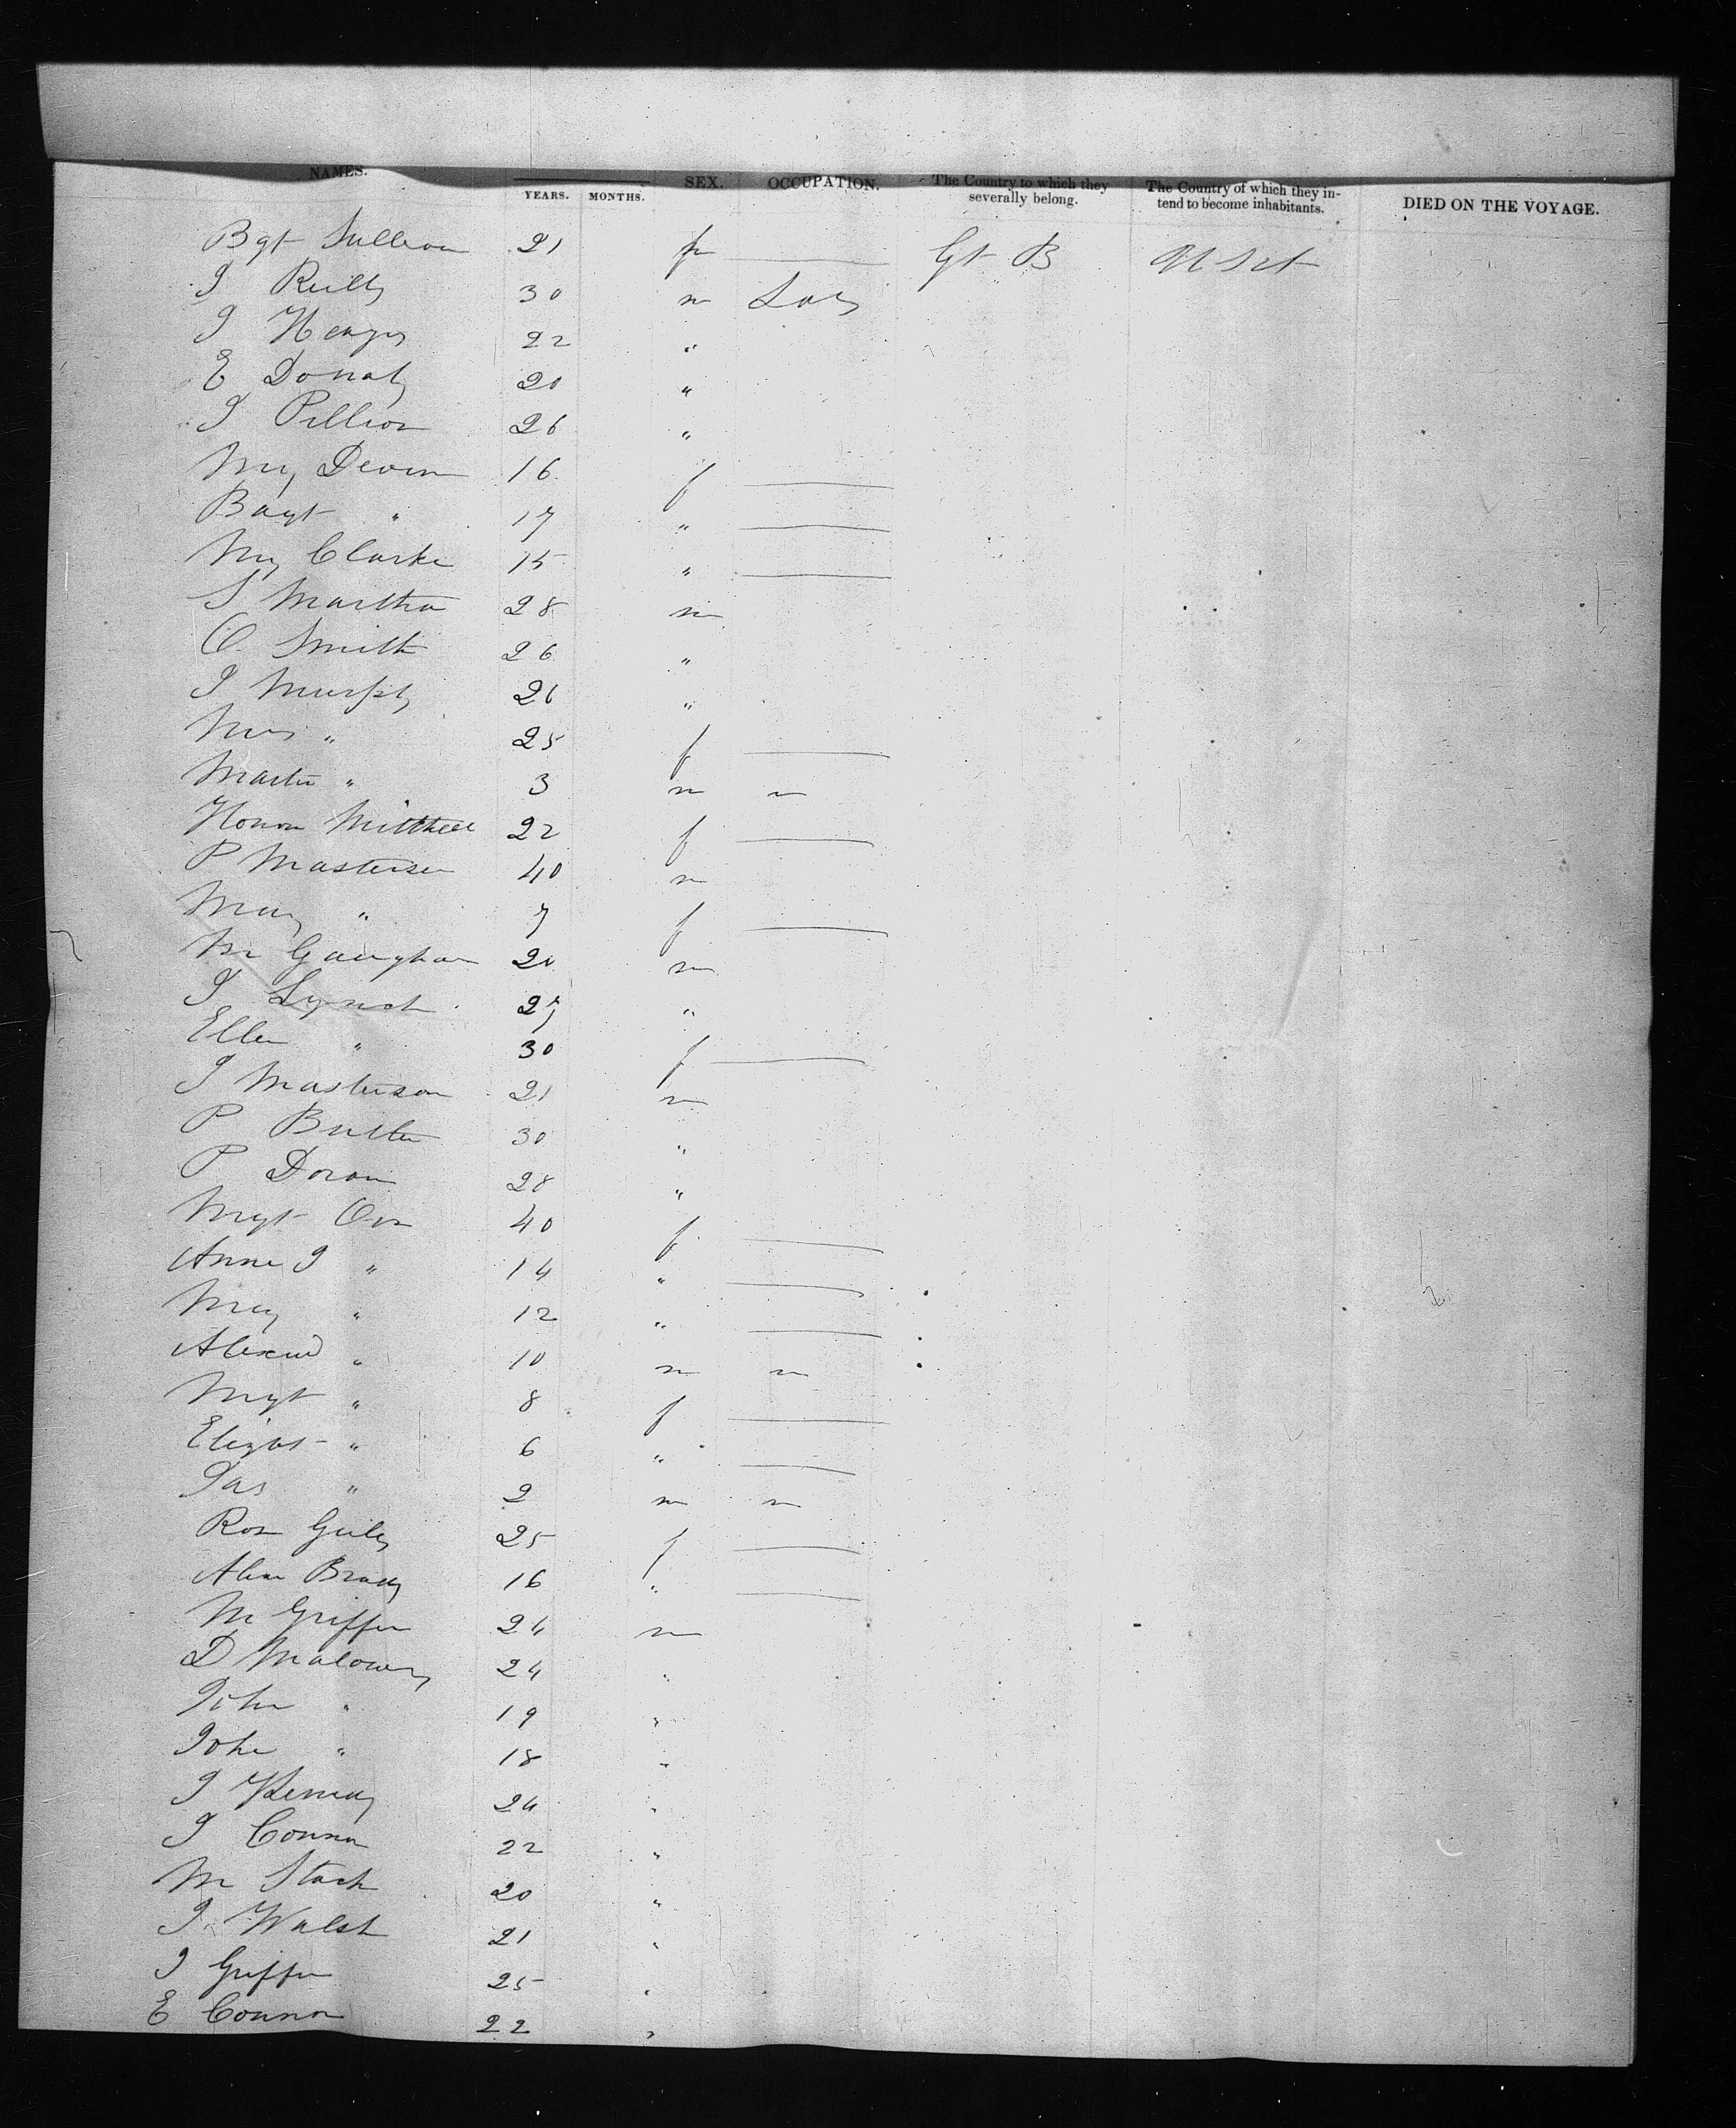 NAMES. YEARS. MONTHS. SEX. OCCUPATION. The Country to which they severally belong. The Country of which they intend to become inhabitants. DIED ON THE VOYAGE.
Bgt Sullivan 21 f Gt B U St
J Reilly 30 m Lab
J 22 "
E 20 "
J Pillion 26 "
My Devin 16 f
Bagt " 17 "
My Clarke 15 "
S Martha 28 m
O. Smith 26 "
J Murphy 26 "
Mrs " 25 f
Martin " 3 m "
Honor Mitchell 22 f
P Masterson 40 m
Mary " 7 f
M Gaughan 20 m
J Lynch 27 "
Ellen " 30 f
J Masterson 21 m
P Butler 30 "
P Doran 28 "
Mgt Orr 40 f
Anne J " 14 "
Mary " 12 "
Alexnd " 10 m "
Mgt " 8 f
Elizbt " 6 "
Jas " 2 m "
Rose 25 f
Brady 16 "
M Griffin 24 m
D Malowny 24 "
John " 19 "
John " 18 "
J Kennedy 24 "
J Connor 22 "
M Stack 20 "
J Walsh 21 "
J Griffin 25 "
E Connor 22 "